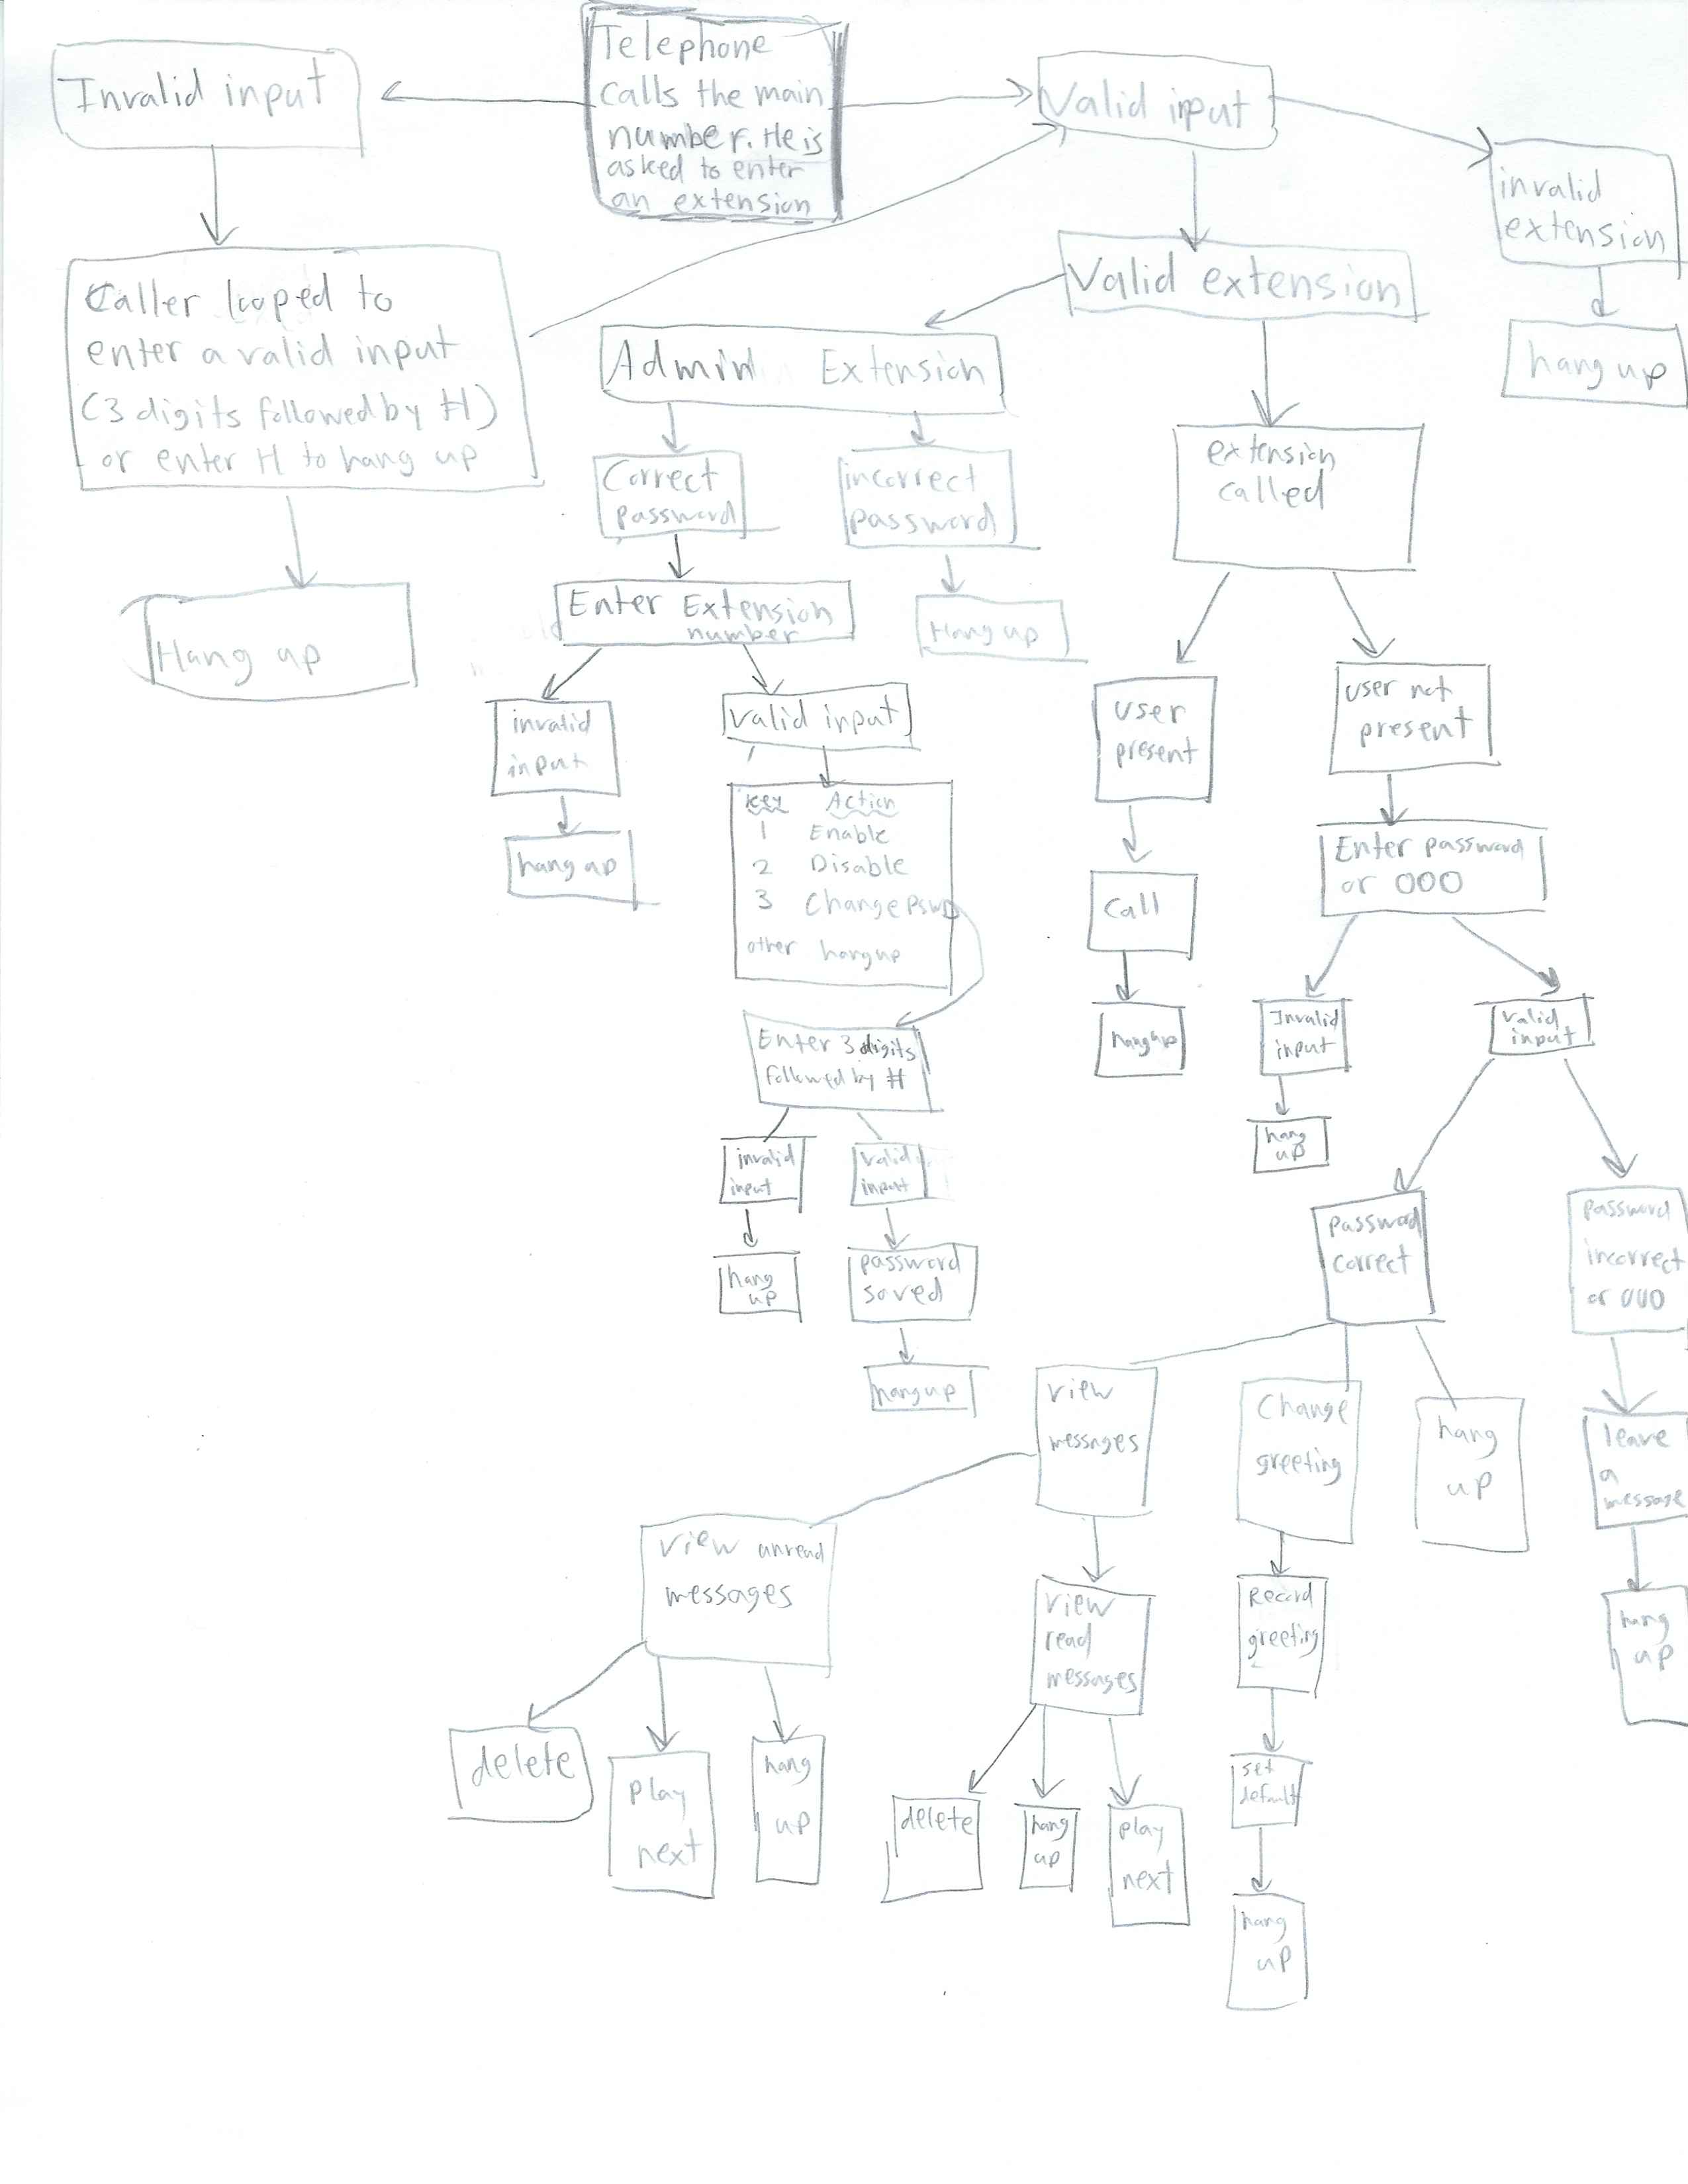 Telephone
calls the main
number. He is
asked to enter
an extension
Invalid input
Valid input
invalid
extension
hang up
Caller looped to
enter a valid input
(3 digits followed by H)
or enter H to hang up
Hang up
Valid extension
Admin Extension
Correct
password
incorrect
password
Hang up
Enter Extension
number
invalid
input
hang up
valid input
key Action
1 Enable
2 Disable
3 Change Pswd
other hang up
Enter 3 digits
followed by #
invalid
input
hang
up
valid
input
password
saved
hang up
extension
called
user
present
call
hang up
user not
present
Enter password
or 000
Invalid
input
hang
up
valid
input
password
correct
password
incorrect
or 000
leave
a
message
hang
up
view
messages
Change
greeting
hang
up
view unread
messages
delete
play
next
hang
up
view
read
messages
delete
hang
up
play
next
Record
greeting
set
default
hang
up